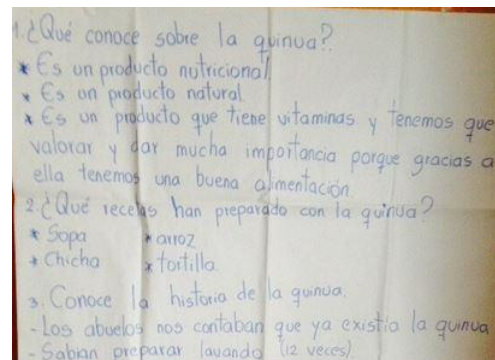 1. ¿Qué conoce sobre la quinua?
* Es un producto nutricional
* Es un producto natural
* Es un producto que tiene vitaminas y tenemos que
valorar y dar mucha importancia porque gracias a
ella tenemos una buena alimentación
2. ¿Qué recetas han preparado con la quinua?
* Sopa * arroz
* Chicha * tortilla.
3. Conoce la historia de la quinua.
- Los abuelos nos contaban que ya existia la quinua
- Sabian preparar lavando (12 veces).